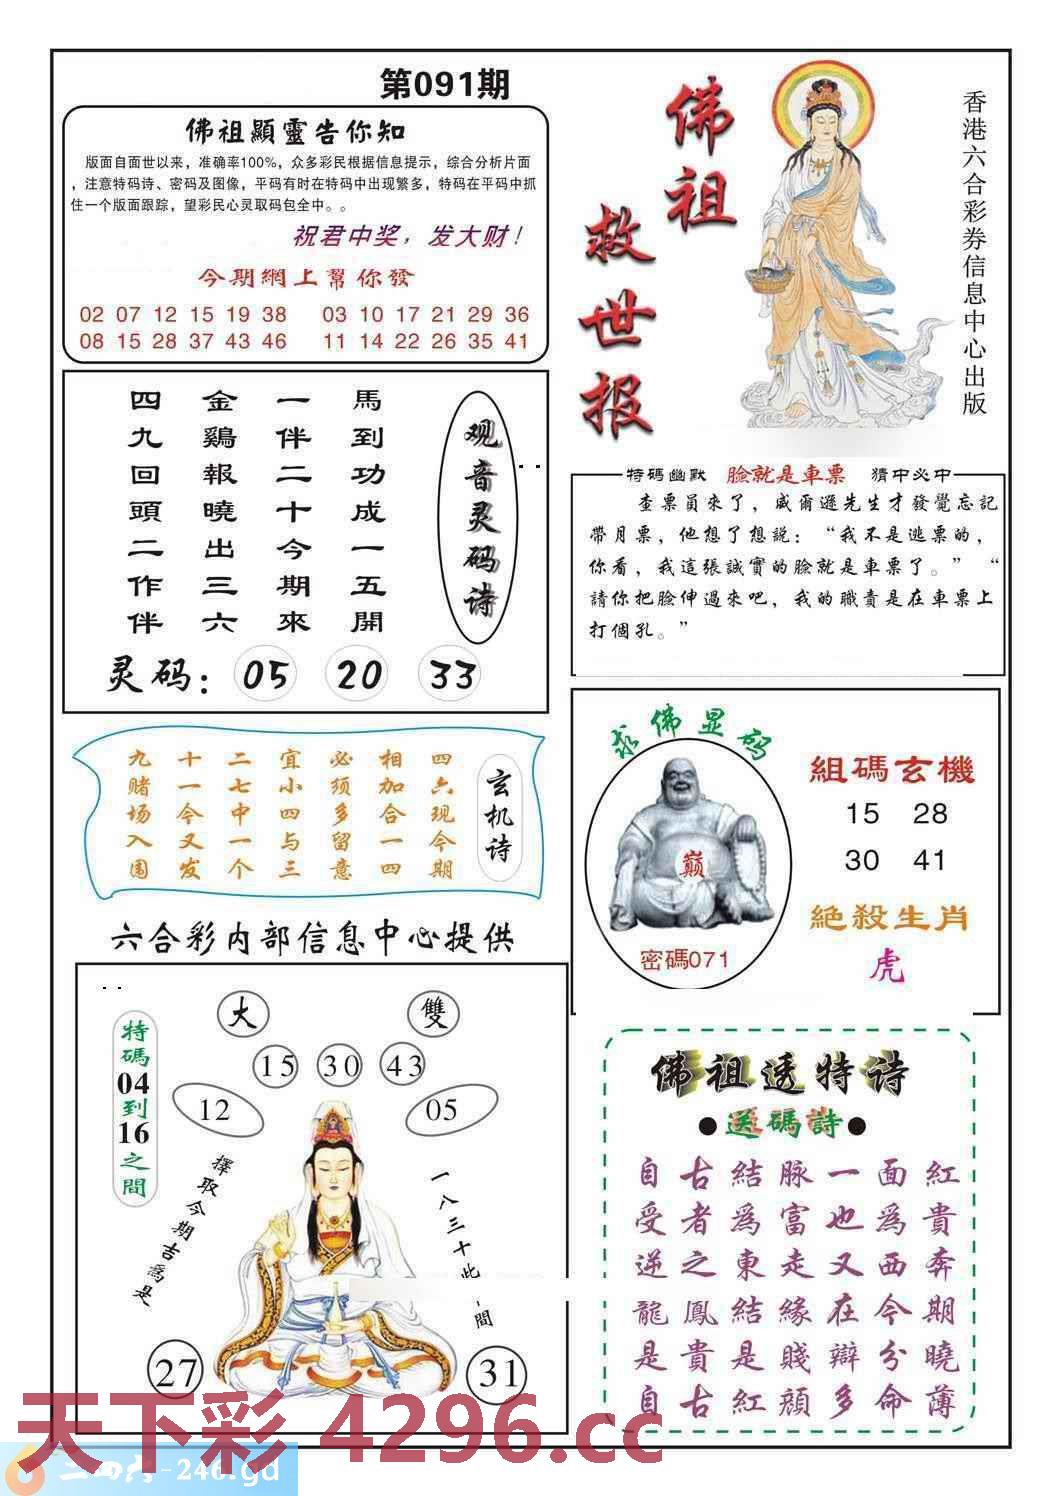 第091期
佛祖顯靈告你知
版面自面世以来，准确率100%，众多彩民根据信息提示，综合分析片面
，注意特码诗、密码及图像，平码有时在特码中出现繁多，特码在平码中抓
住一个版面跟踪，望彩民心灵取码包全中。。
祝君中奖，发大财！
今期網上幫你發
02 07 12 15 19 38 03 10 17 21 29 36
08 15 28 37 43 46 11 14 22 26 35 41
佛祖
救世报
香港六合彩券信息中心出版
观音灵码诗
馬到功成一五開
一伴二十今期來
金鷄報曉出三六
四九回頭二作伴
灵码：05 20 33
特碼幽默 臉就是車票 猜中必中
查票員來了，威爾遜先生才發覺忘記
帶月票，他想了想説：“我不是逃票的，
你看，我這張誠實的臉就是車票了。” “
請你把臉伸過來吧，我的職責是在車票上
打個孔。”
玄机诗
四六现今期
相加合一四
必须多留意
宜小四与三
二七中一个
十一今又发
九赌场入围
求佛显码
巅
密碼071
組碼玄機
15 28
30 41
絶殺生肖
虎
六合彩内部信息中心提供
特碼04到16之間
大 雙
15 30 43
12 05
擇取今期吉為是
一八三十此間
27 31
佛祖透特诗
●送碼詩●
自古結脉一面紅
受者為富也為貴
逆之東走又西奔
龍鳳結緣在今期
是貴是賤辯分曉
自古紅顔多命薄
天下彩 4296.cc
二四六-246.gd